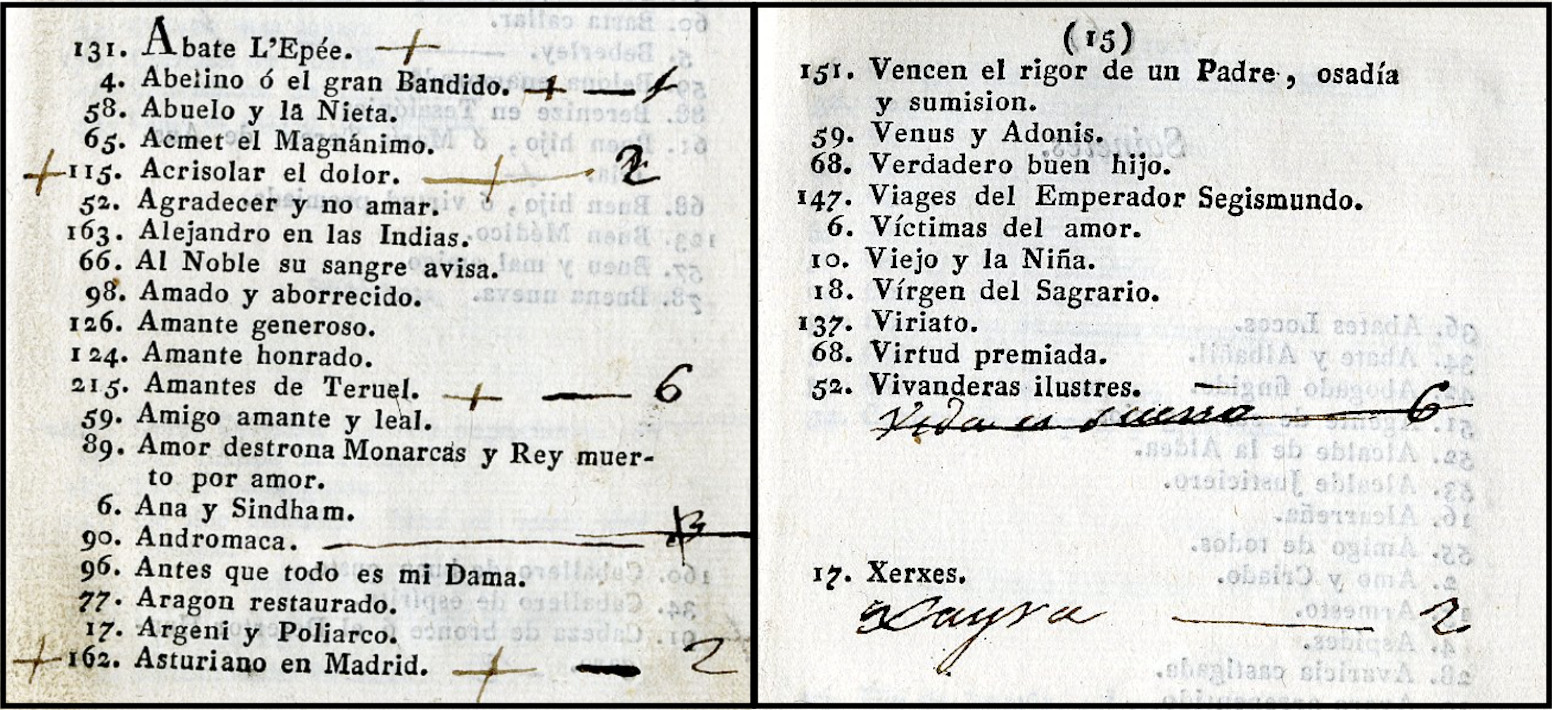 131. Abate L'Epée.
4. Abelino ó el gran Bandido.
58. Abuelo y la Nieta.
65. Acmet el Magnánimo.
115. Acrisolar el dolor. 2
52. Agradecer y no amar.
163. Alejandro en las Indias.
66. Al Noble su sangre avisa.
98. Amado y aborrecido.
126. Amante generoso.
124. Amante honrado.
215. Amantes de Teruel. 6
59. Amigo amante y leal.
89. Amor destrona Monarcas y Rey muer-
to por amor.
6. Ana y Sindham.
90. Andromaca.
96. Antes que todo es mi Dama.
77. Aragon restaurado.
17. Argeni y Poliarco.
162. Asturiano en Madrid. 2
(15)
151. Vencen el rigor de un Padre, osadía
y sumision.
59. Venus y Adonis.
68. Verdadero buen hijo.
147. Viages del Emperador Segismundo.
6. Víctimas del amor.
10. Viejo y la Niña.
18. Vírgen del Sagrario.
137. Viriato.
68. Virtud premiada.
52. Vivanderas ilustres.
Vida es sueño 6
17. Xerxes.
Zayra 2